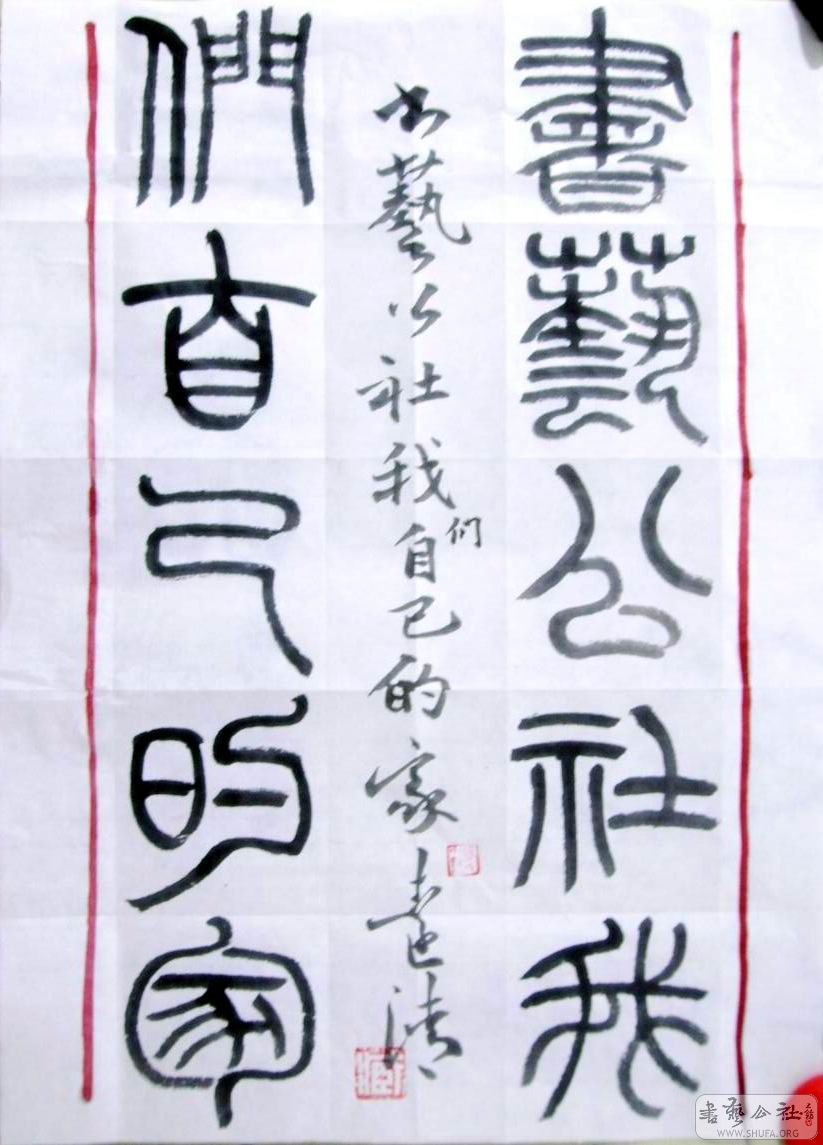 書藝公社我
們自己的家
书藝公社我们自己的家
書藝公社
WWW.SHUFA.ORG